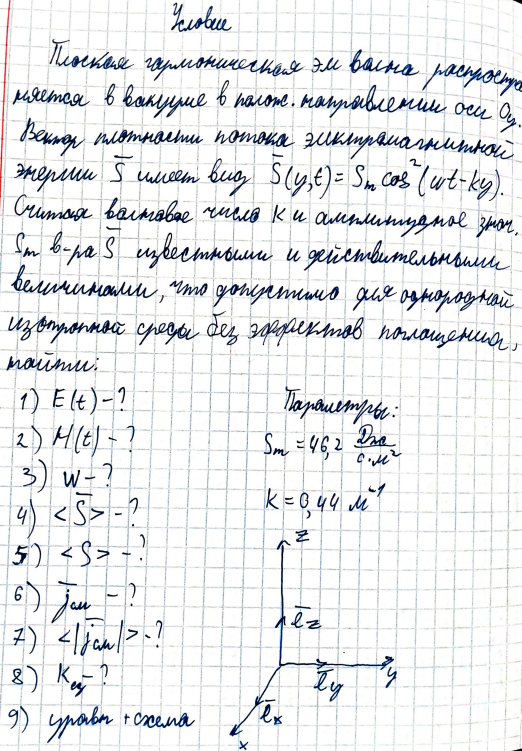 Условие
Плоская гармоническая эм волна распростра
няется в вакууме в полож. направлении оси Oy.
Вектор плотности потока электромагнитной
энергии S̄ имеет вид S̄(y,t)=Sm cos²(wt-ky).
Считая волновое число K и амплитудное знач.
Sm в-ра S̄ известными и действительными
величинами, что допустимо для однородной
изотропной среды без эффектов поглощения,
найти:
1) E(t) - ?
2) H(t) - ?
3) w - ?
4) <S̄> - ?
5) <S> - ?
6) j̄см - ?
7) <|j̄см|> - ?
8) Kед - ?
9) уравн + схема
Параметры:
Sm = 46,2 Дж/с·м²
K = 0,44 м⁻¹
z
ēz
ēy
y
ēx
x